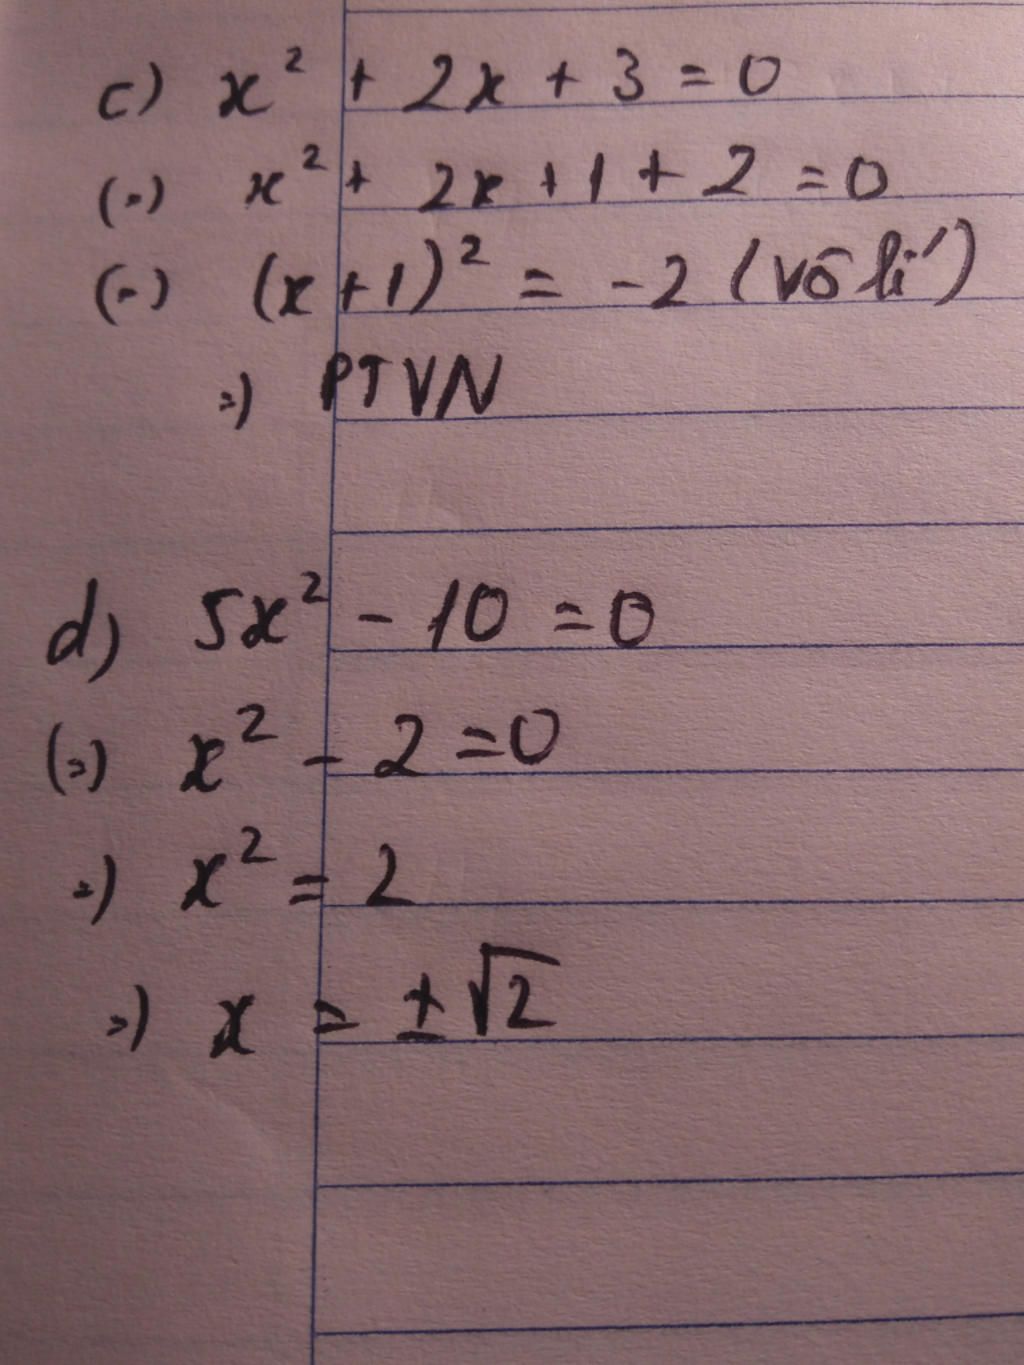 c) x² + 2x + 3 = 0
(=) x² + 2x + 1 + 2 = 0
(=) (x + 1)² = -2 (vô lí)
=) PTVN
d) 5x² - 10 = 0
(=) x² - 2 = 0
=) x² = 2
=) x = ±√2